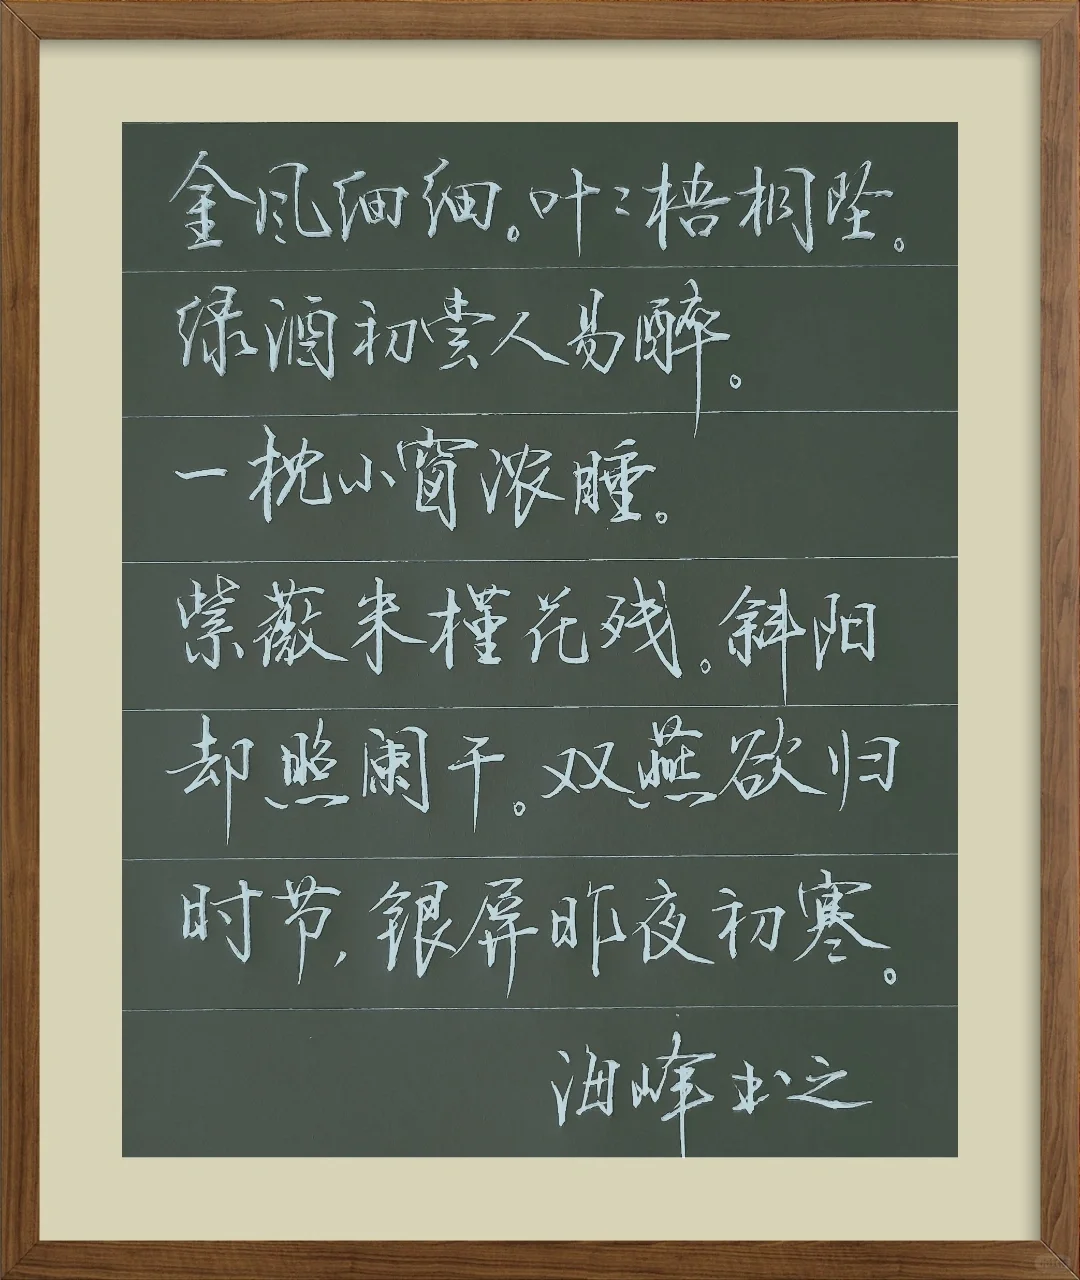 金风细细。叶〻梧桐坠。
绿酒初尝人易醉。
一枕小窗浓睡。
紫薇朱槿花残。斜阳
却照阑干。双燕欲归
时节,银屏昨夜初寒。
海峰书之